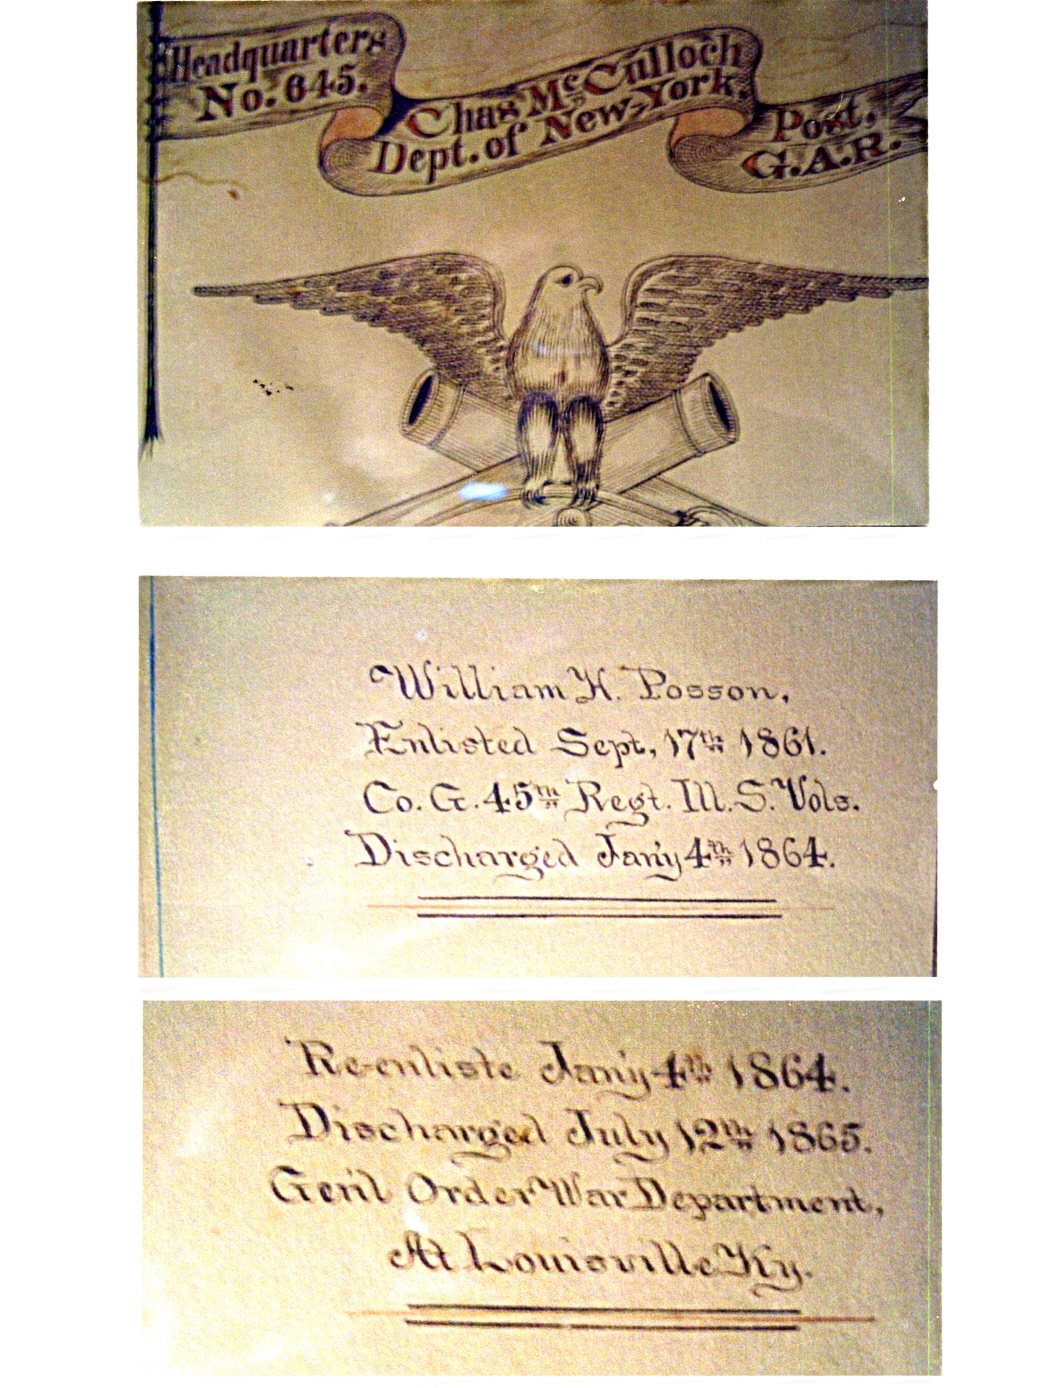 Headquarters Chas McCulloch Post.
No. 645. Dept. of New-York. G.A.R.
William H. Posson,
Enlisted Sept, 17th 1861.
Co. G. 45th Regt. Ill. S. Vols.
Discharged Jan'y 4th 1864.
Re-enliste Jan'y 4th 1864.
Discharged July 12th 1865.
Gen'l Order War Department,
At Louisville Ky.